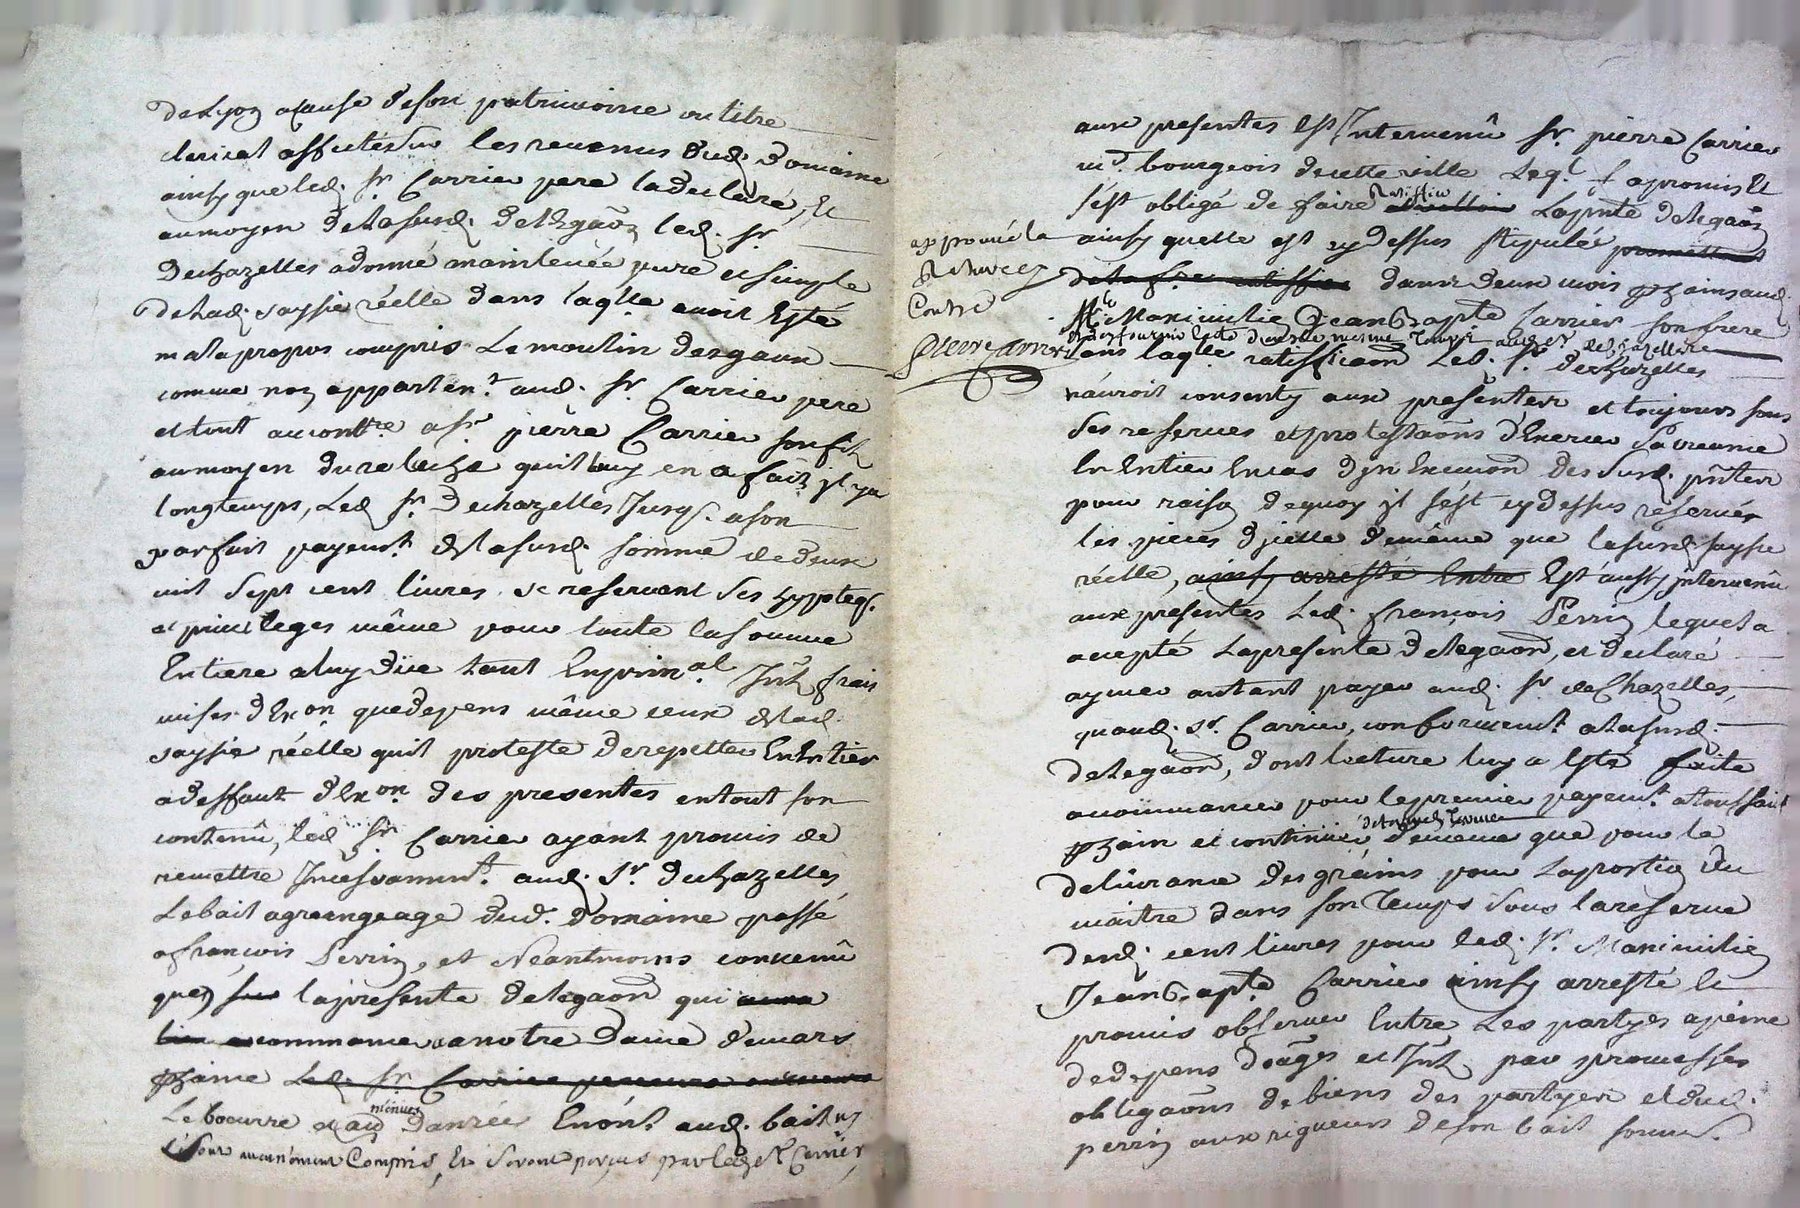 de Lyon acause deson patrimoine ou titre
clerical affectés sur les revenus dud. domaine
ainsy que led. Sr Carrier pere la declaré, Et
aumoyen delasusd. delegaõn led. Sr
dechazelles adonné mainlevée pure et simple
delad. saysie réelle dans laqlle avoit Esté
malapropos compris Le moulin desgaux
comme non appartent aud. Sr Carrier pere
et tout aucontre a Sr pierre Carrier son fils
aumoyen durelache quil luy en a fait jl ya
longtemps, Led Sr Dechazelles Jusq. a son
parfait payemt. delasusd. somme de deux
mil sept cent livres. se reservant ses hypteq.
et privileges même pour toute lasomme
Entiere aluy düe tant Enprinal. Jnts frais
mises dExon quedepens même ceux delad.
saysie réelle quil proteste derepetter EnEntier
adeffaut dExon des presentes entout son
contenû, led Sr Carrier ayant promis de
remettre Jncessamment. aud. Sr. dechazelles
Lebail agrangeage dud. domaine passé
afrancois Perrin, et Neantmoins convenû
que laprésente delegaõn qui
commancera anotre Dame demars
pzaine
Le beurre et aud menues danrées Enont. aud. bail ny
sont aucunement Compris, Et seront perçus par led Sr Carrier
aux presentes Est Jntervenû Sr. pierre Carrier
md. bourgeois decette ville Leql. apromis Et
s'est obligé de faire Ratiffier Lapnte delegaõn
ainsy quelle est cydessus stipulée promettant
dans deux mois pzains aud.
Me Maximilien Jean Bapte Carrier son frere
approuvé la
Contre
Pierre Carrier
sans laqlle ratifficaõn Led. Sr dechazelles
n'auroit consenty aux presentes et toujours sous
ses reserves etprotestaõns dExercer sa creance
En Entier Encas djnExecuõn des susd. pntes
pour raison dequoy jl s'est cydessus réservés
les pieces djcelle demême que lasusd saysie
réelle, ainsy arresté Entre Est aussy jntervenû
aux presentes Led. françois Perrin lequel a
accepté Lapresente delegaõn, et declaré
aymer autant payer aud. Sr deChazelles,
quaud. Sr. Carrier, conformemt. alasusd.
delegaõn, dont lecture luy a Esté faite
acommancer pour lepremier payemt. atoussaint
pzain et continuer demême que pour la
delivrance des grains pour Laportion du
maitre dans son Temps sous lareserve
desd. cent livres pour led. Sr. Maximilien
Jean Bapte Carrier ainsy arresté Et
promis observer Entre Les partyes apeine
dedepens doãges et Jnts par promesses
obligaõns de biens des partyes et dud.
perrin aux rigueurs deson bail soumis.